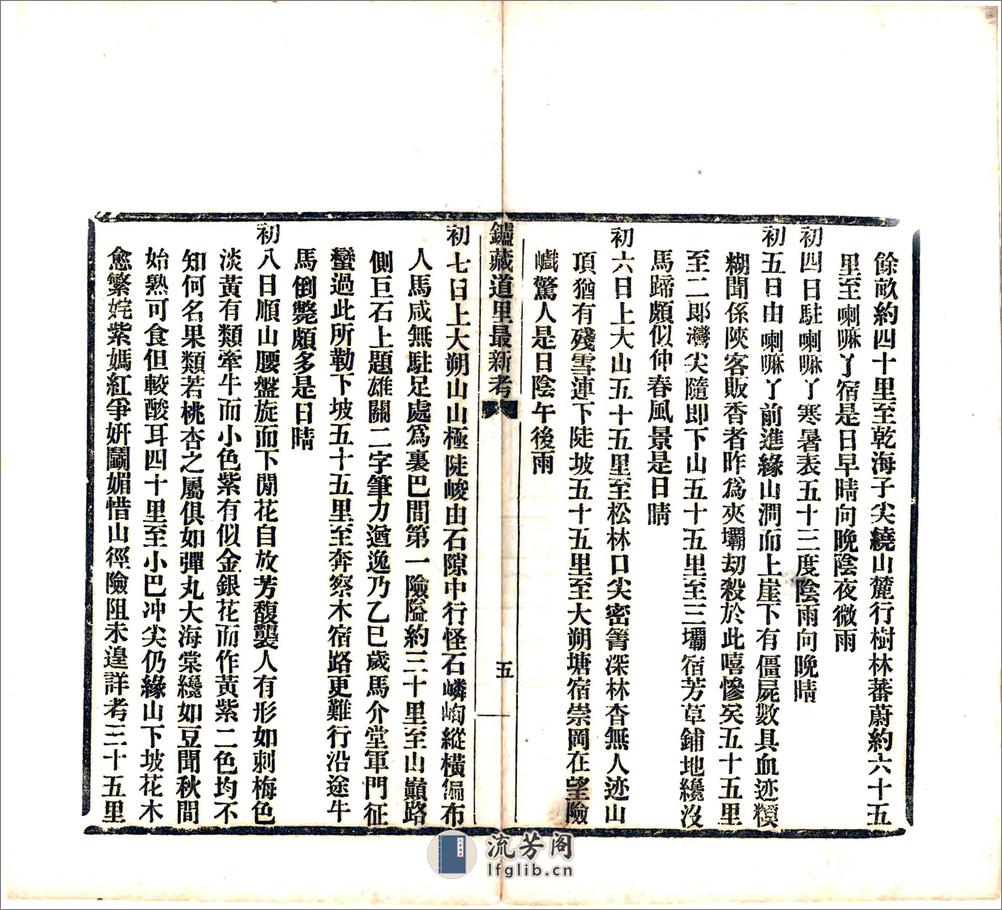 餘畝約四十里至乾海子尖繞山麓行樹林蕃蔚約六十五
里至喇嘛丫宿是日早晴向晚陰夜微雨
初四日駐喇嘛丫寒暑表五十三度陰雨向晚晴
初五日由喇嘛丫前進緣山澗而上崖下有僵屍數具血迹糢
糊聞係陝客販香者昨為夾壩劫殺於此嘻慘矣五十五里
至二郎灣尖隨即下山五十五里至三壩宿芳草鋪地纔沒
馬蹄頗似仲春風景是日晴
初六日上大山五十五里至松林口尖密箐深林杳無人迹山
頂猶有殘雪連下陡坡五十五里至大朔塘宿崇岡在望險
巇驚人是日陰午後雨
鑪藏道里最新考
五
初七日上大朔山山極陡峻由石隙中行怪石嶙峋縱橫漏布
人馬咸無駐足處為裏巴間第一險隘約三十里至山巔路
側巨石上題雄關二字筆力遒逸乃乙巳歲馬介堂軍門征
蠻過此所勒下坡五十五里至奔察木宿路更難行沿途牛
馬倒斃頗多是日晴
初八日順山腰盤旋而下閒花自放芳馥襲人有形如刺梅色
淡黃有類牽牛而小色紫有似金銀花而作黃紫二色均不
知何名果類若桃杏之屬俱如彈丸大海棠纔如豆聞秋間
始熟可食但較酸耳四十里至小巴冲尖仍緣山下坡花木
愈繁姹紫嫣紅爭妍鬬媚惜山徑險阻未遑詳考三十五里
流芳阁
lfglib.cn